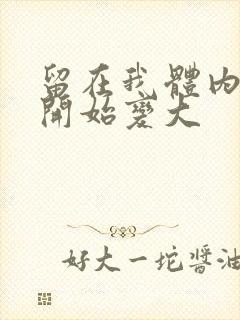 留在我體內
開始變大
好大一坨醬油